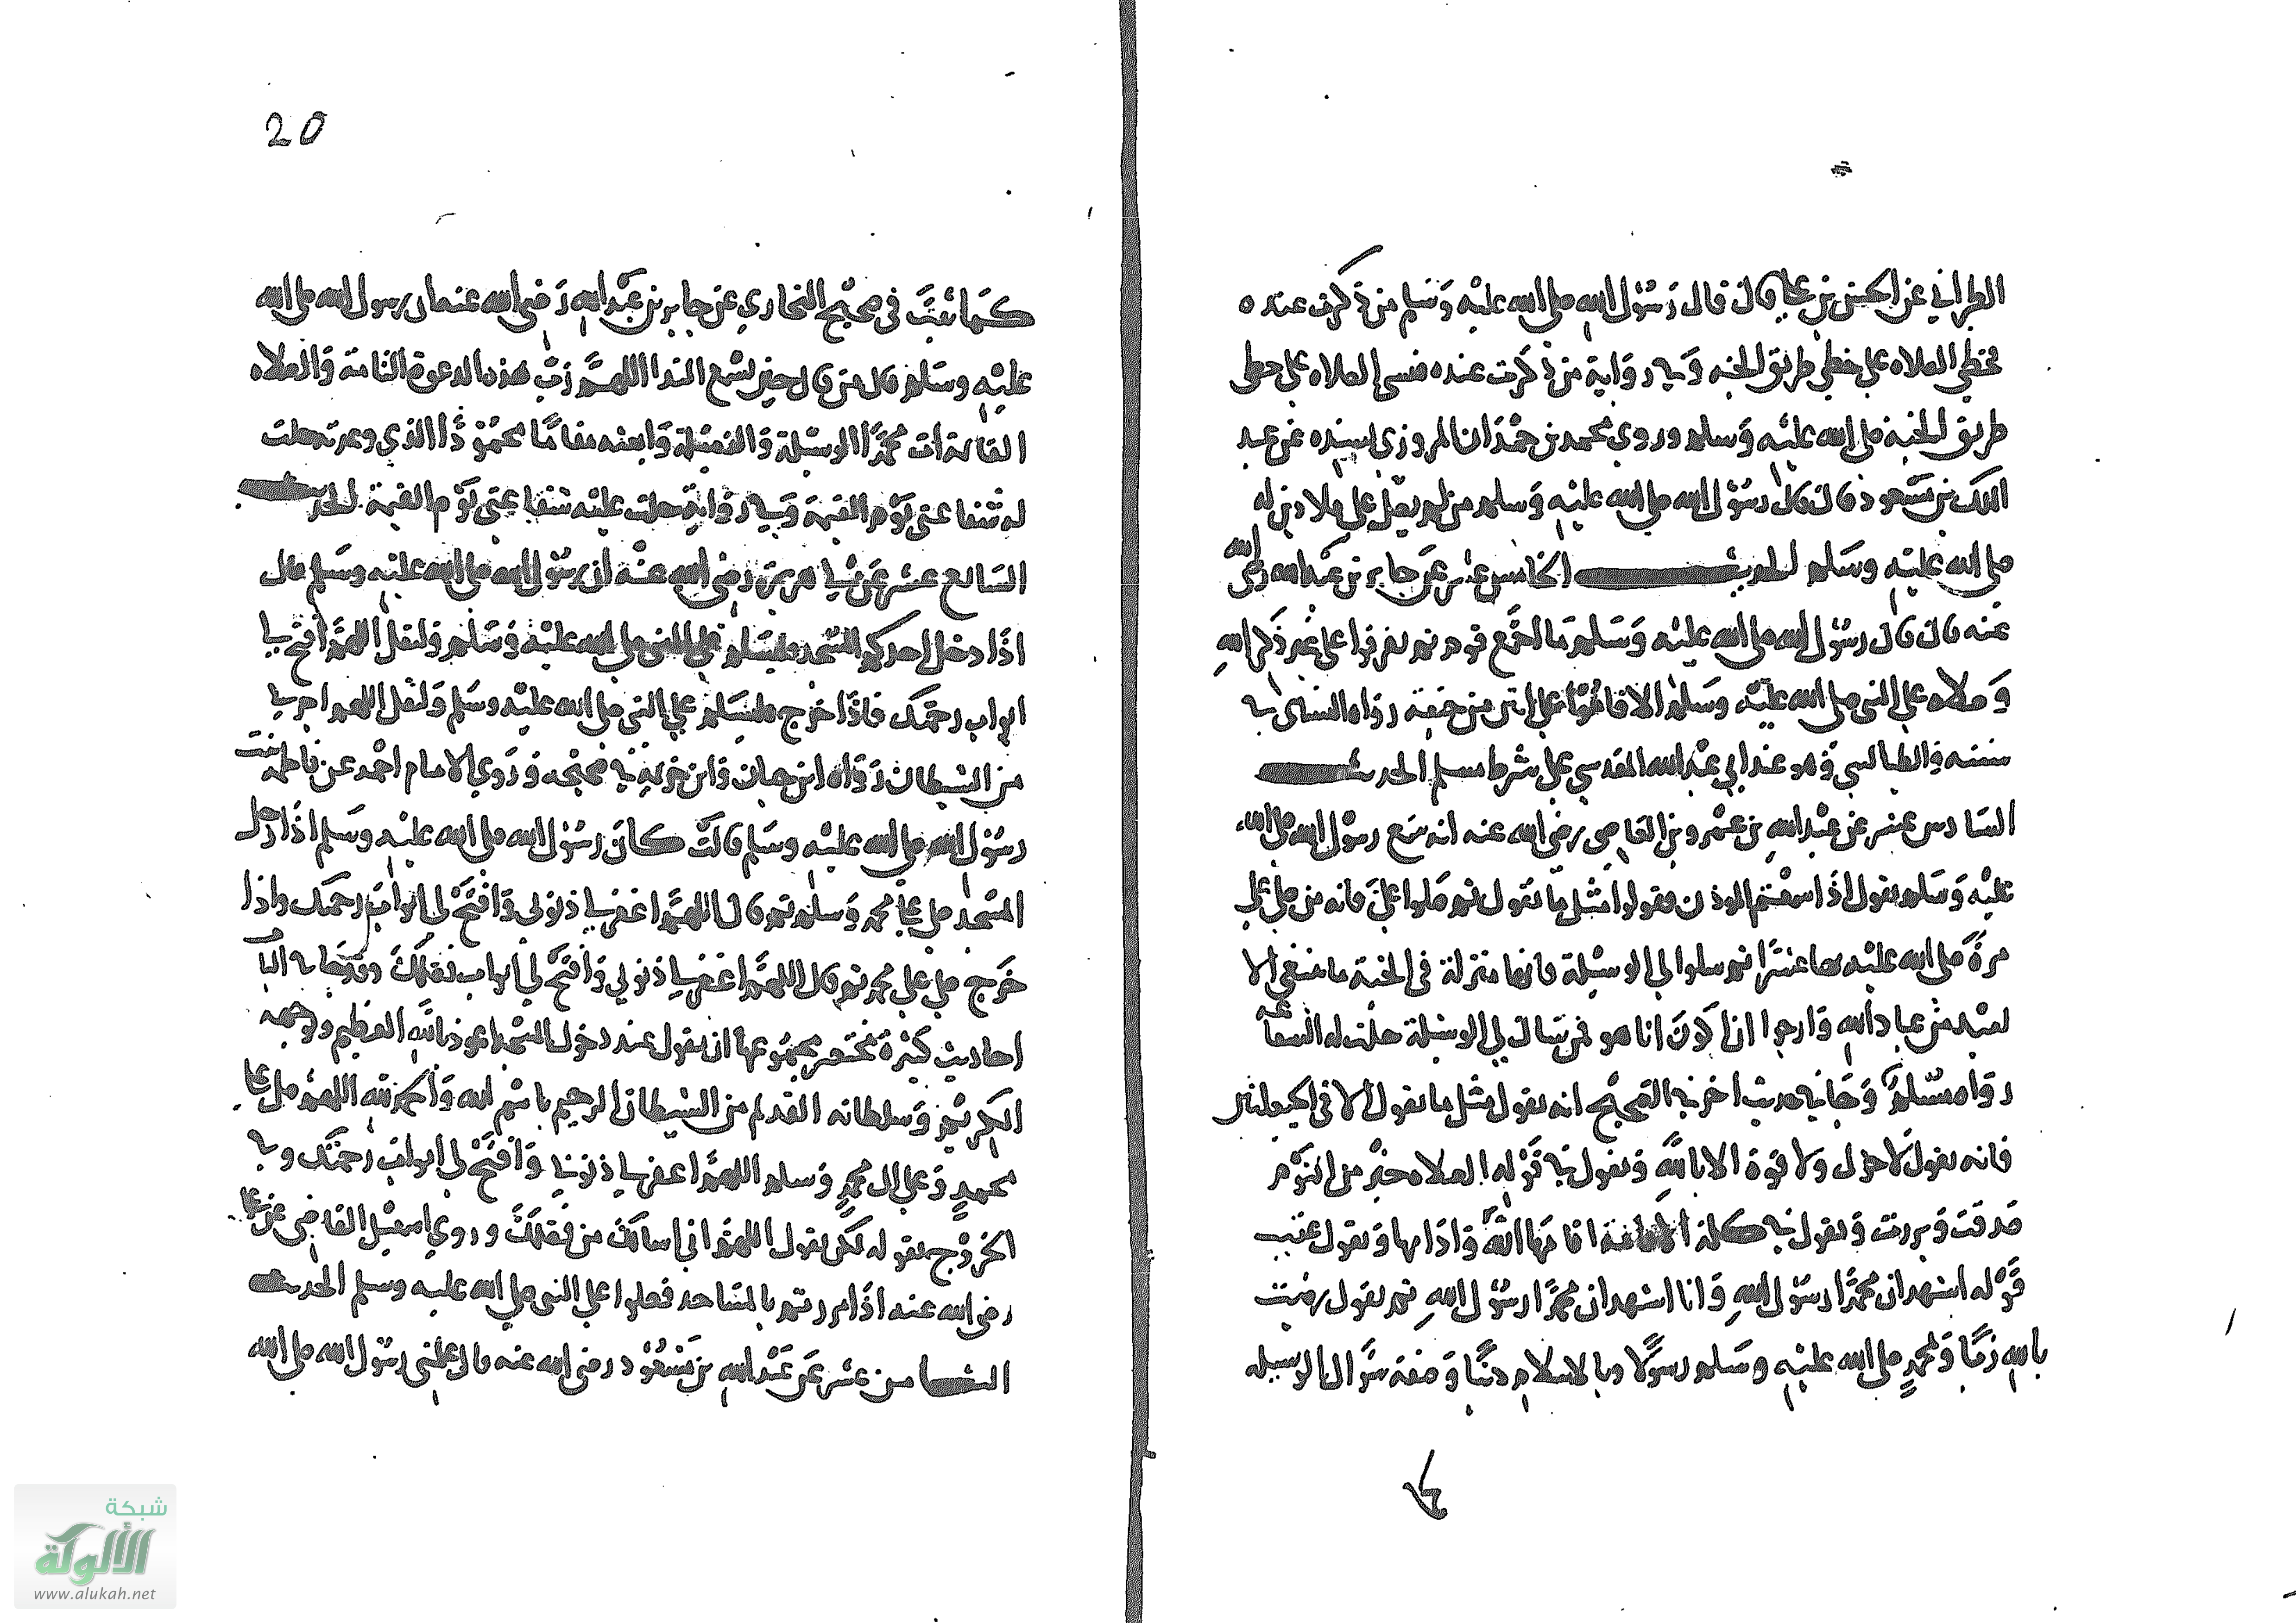 الطبراني عن الحسن بن علي قال قال رسول الله صلى الله عليه وسلم من ذكرت عنده
فخطي الصلاه علي خطي طريق الجنه وفي رواية من ذكرت عنده فنسي الصلاه علي خطى
طريق الجنة صلى الله عليه وسلم وروي محمد بن حمدان المروزي بسنده عن عبد
الملك بن مسعود قال قال رسول الله صلى الله عليه وسلم من لم يصل علي فلا دين له
صلى الله عليه وسلم الحديث الخامس عشر عن جابر بن عبد الله رضي الله
عنه قال قال رسول الله صلى الله عليه وسلم ما اجتمع قوم ثم تفرقوا على غير ذكر الله
وصلاه علي النبي صلى الله عليه وسلم الا قاموا على انتن من جيفة رواه النساي في
سننه والطيالسي وهو عند ابي عبد الله المقدسي على شرط مسلم الحديث
السادس عشر عن عبد الله بن عمرو بن العاصي رضى الله عنه انه سمع رسول الله صلى الله
عليه وسلم يقول اذا سمعتم الموذن فقولوا مثل ما يقول ثم صلوا علي فانه من صلى علي
مرة صلى الله عليه بها عشرا ثم سلوا لي الوسيلة فانها منزلة في الجنة ما تنبغي الا
لعبد من عباد الله وارجوا ان اكون انا هو فمن سال لي الوسيلة حلت له الشفاعة
رواه مسلم وجا في حديث اخر في الصحيح انه يقول مثل ما يقول الا في الحيعلتين
فانه يقول لا حول ولا قوة الا بالله ويقول في قوله الصلاه خير من النوم
صدقت وبررت ويقول في كلمة الاقامة اقامها الله وادامها ويقول عقيب
قوله اشهد ان محمدا رسول الله وانا اشهد ان محمدا رسول الله ثم يقول رضيت
بالله ربا وبمحمد صلى الله عليه وسلم رسولا وبالاسلام دينا وصفة سوال الوسيله
20
كما ثبت في صحيح البخاري عن جابر بن عبد الله رضي الله عنه ان رسول الله صلى الله
عليه وسلم قال من قال حين يسمع الندا اللهم رب هذه الدعوة التامة والصلاه
القائمة ات محمدا الوسيلة والفضيلة وابعثه مقاما محمودا الذي وعدته حلت
له شفاعتي يوم القيمة وفي رواية حلت عليه شفاعتي يوم القيمة الحديث
السابع عشر عن ابي هريرة رضى الله عنه ان رسول الله صلى الله عليه وسلم قال
اذا دخل احدكم المسجد فليسلم على النبي صلى الله عليه وسلم وليقل اللهم افتح لي
ابواب رحمتك فاذا خرج فليسلم علي النبي صلى الله عليه وسلم وليقل اللهم اجرني
من الشيطان رواه ابن حبان وابن خزيمة في صحيحه وروي الامام احمد عن فاطمة بنت
رسول الله صلى الله عليه وسلم قالت كان رسول الله صلى الله عليه وسلم اذا دخل
المسجد صلى على محمد وسلم ثم قال اللهم اغفر لي ذنوبي وافتح لي ابواب رحمتك واذا
خرج صلى على محمد ثم قال اللهم اغفر لي ذنوبي وافتح لي ابواب فضلك في الباب
احاديث كثيرة مختصر مجموعها ان يقول عند دخول المسجد اعوذ بالله العظيم وبوجهه
الكريم وسلطانه القديم من الشيطان الرجيم باسم الله والحمد لله اللهم صل على
محمد وعلى ال محمد وسلم اللهم اغفر لي ذنوبي وافتح لي ابواب رحمتك وفي
الخروج يقوله لكن يقول اللهم اني اسالك من فضلك وروي اسمعيل القاضي عن علي
رضى الله عنه اذا مررتم بالمساجد فصلوا على النبي صلى الله عليه وسلم الحديث
الثامن عشر عن عبد الله بن مسعود رضى الله عنه قال علمني رسول الله صلى الله
شبكة
الألوكة
www.alukah.net